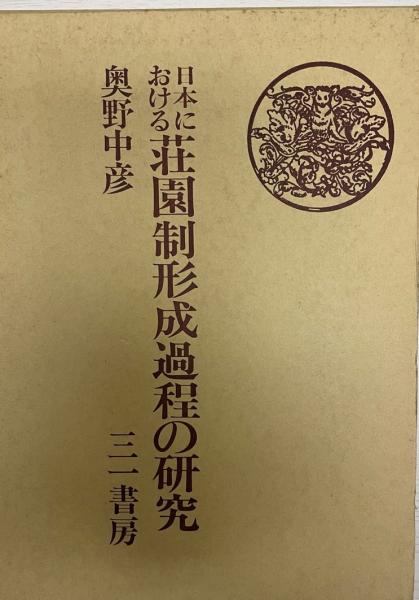 日本における荘園制形成過程の研究
奥野中彦
三一書房